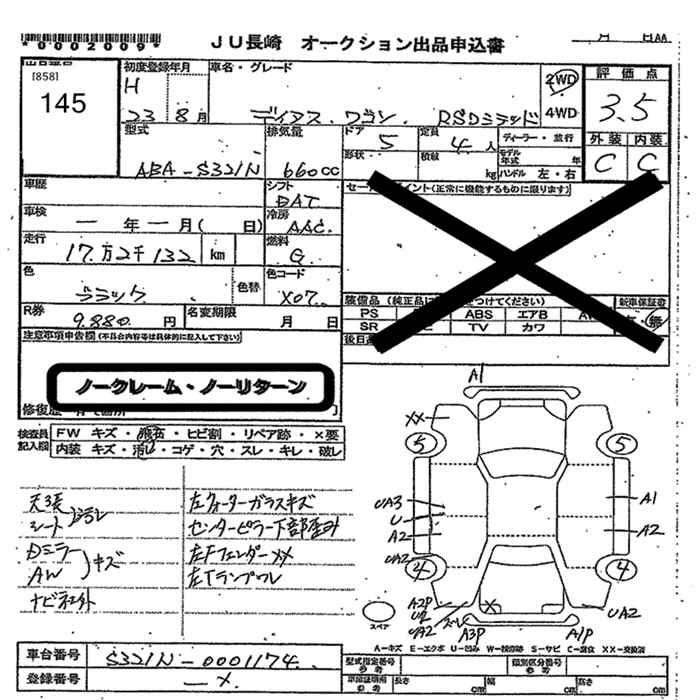 *0002009*
JU長崎 オークション出品申込書
月 日AA
[858]
145
初度登録年月
H
23 8月
車名・グレード
ディアス ワゴン RSリミテッド
2WD
4WD
評価点
3.5
外装 内装
C C
型式
ABA-S321N
排気量
660cc
ドア
5
定員
4人
ディーラー・並行
形状
積載
kg
モデル年式 年
ハンドル 左・右
車歴
シフト
DAT
セールスポイント(正常に機能するものに限ります)
車検
一年一月( 日)
冷房
AAC
走行
17万2千132 km
燃料
G
色
ブラック
色替
色コード
X07
R券
9,880円
名変期限
月 日
装備品(純正品に つけてください)
新車保証書
PS
ABS
エアB
SR
TV
カワ
無
注意事項申告欄(不具合内容等は具体的に記入して下さい)
ノークレーム・ノーリターン
検査員記入欄
FW キズ・飛石・ヒビ割・リペア跡・×要
内装 キズ・汚れ・コゲ・穴・スレ・キレ・破レ
天張
シート 汚レ
Dミラー
AW キズ
左クォーターガラスキズ
センターピラー下部歪み
左Fフェンダー××
左Tランプワレ
A1
××
5
5
UA3
U
A2
UA2
A1
A2
4
4
A2P
U2
UA2
スレ
×
A3P
A1P
UA2
スペア
A-キズ E-エクボ U-凹み W-補修跡 S-サビ C-腐食 ××-交換済
車台番号
S321N-0001174
登録番号
-×
型式指定番号 参考
類別区分番号 参考
車検証場所 参考
長さ cm
幅 cm
高さ cm